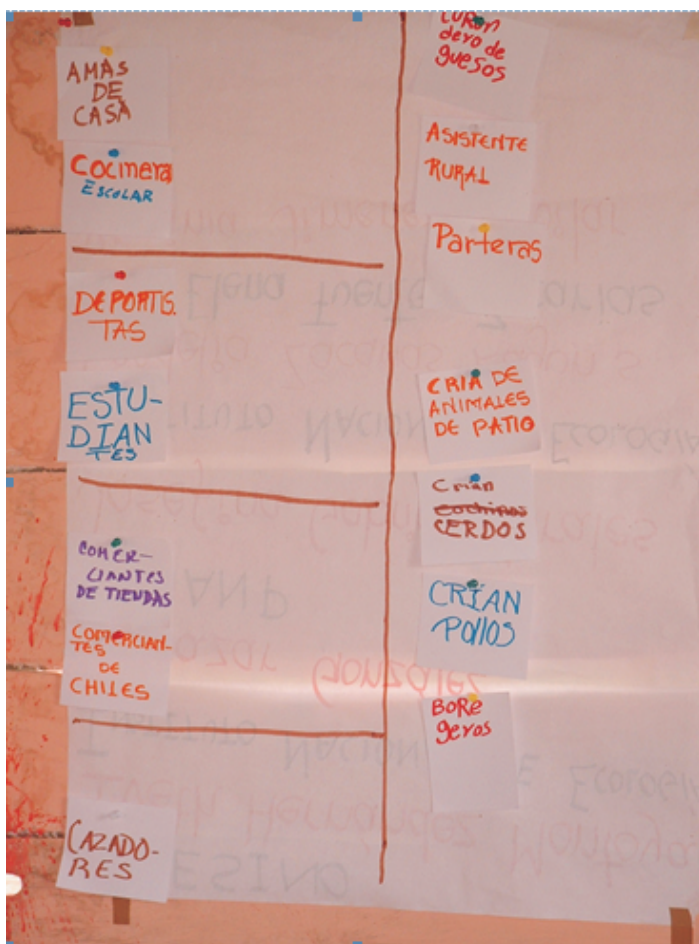 AMAS
DE
CASA
Cocinera
ESCOLAR
DEPORTIS.
TAS
ESTU-
DIAN
TES
COMER-
CIANTES
DE TIENDAS
COMERCIAN-
TES
DE
CHILES
CAZADO-
RES
CURAN
dero de
guesos
ASISTENTE
RURAL
Parteras
CRIA DE
ANIMALES
DE PATIO
Crian
cochinos
CERDOS
CRIAN
POllOS
BORE
geros